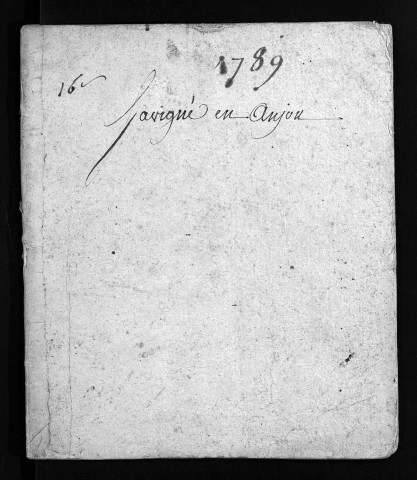 1789
16
Savigné en Anjou